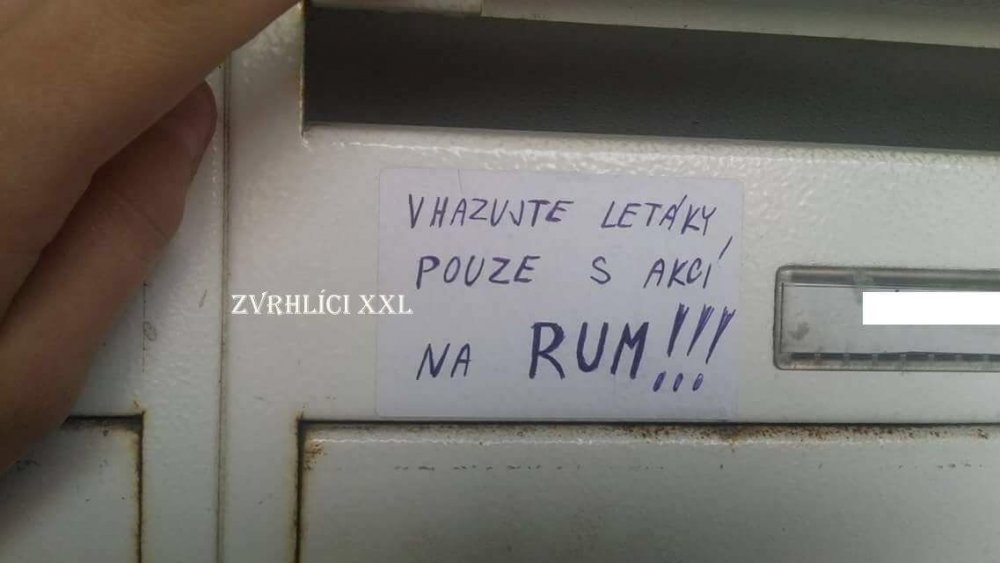 VHAZUJTE LETÁKY
POUZE S AKCÍ
NA RUM!!!
ZVRHLÍCI XXL